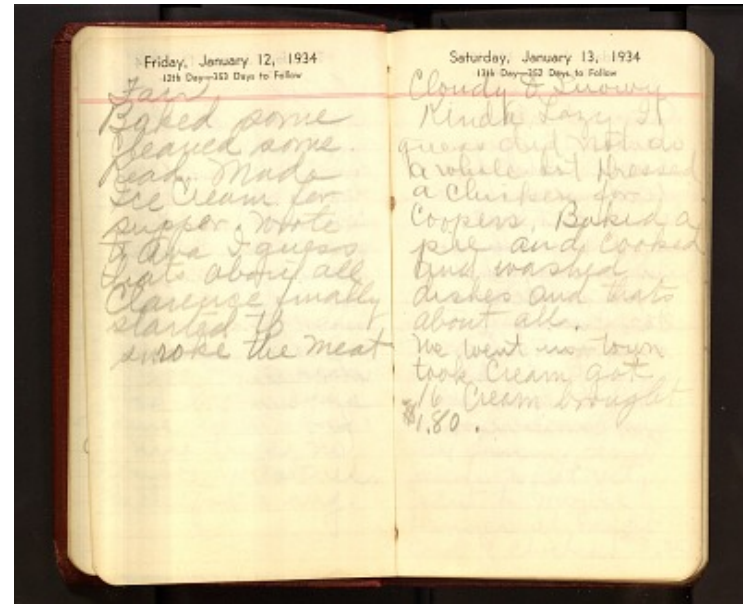 Friday, January 12, 1934
12th Day—353 Days to Follow
Fair
Baked some
Cleaned some.
Read. Made
Ice Cream for
supper. Wrote
to I guess
thats about all
Clarence finally
started to
smoke the meat
Saturday, January 13, 1934
13th Day—352 Days to Follow
Cloudy & Snowy
Kinda Lazy I
guess did not do
a whole lot Dressed
a Chicken for
Coopers. Baked a
pie and cooked
and washed
dishes and thats
about all.
We went to town
took Cream got
16 Cream brought
$1.80.